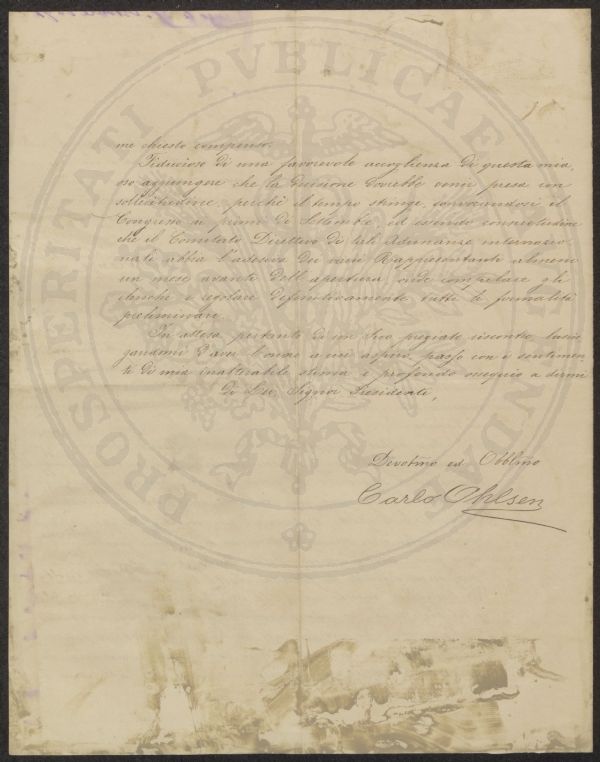 PROSPERITATI PVBLICAE
me chiesto compenso.
Fiducioso di una favorevole accoglienza di questa mia,
oso aggiungere che la decisione dovrebbe venir presa con
sollecitudine, perchè il tempo stringe, convocandosi il
Congresso ai primi di Settembre, ed essendo consuetudine
che il Comitato Direttivo di tali Adunanze internazio-
nali abbia l'adesione dei varii Rappresentanti almeno
un mese avanti dell'apertura onde compilare gli
elenchi e regolare definitivamente tutte le formalità
preliminari.
In attesa pertanto di un Suo pregiato riscontro, lusin-
gandomi d'aver l'onore a cui aspiro, passo con i sentimen-
ti di mia inalterabile stima e profondo ossequio a dirmi
Di Lei, Signor Presidente,
Devotmo ed Obblmo
Carlo Ohlsen